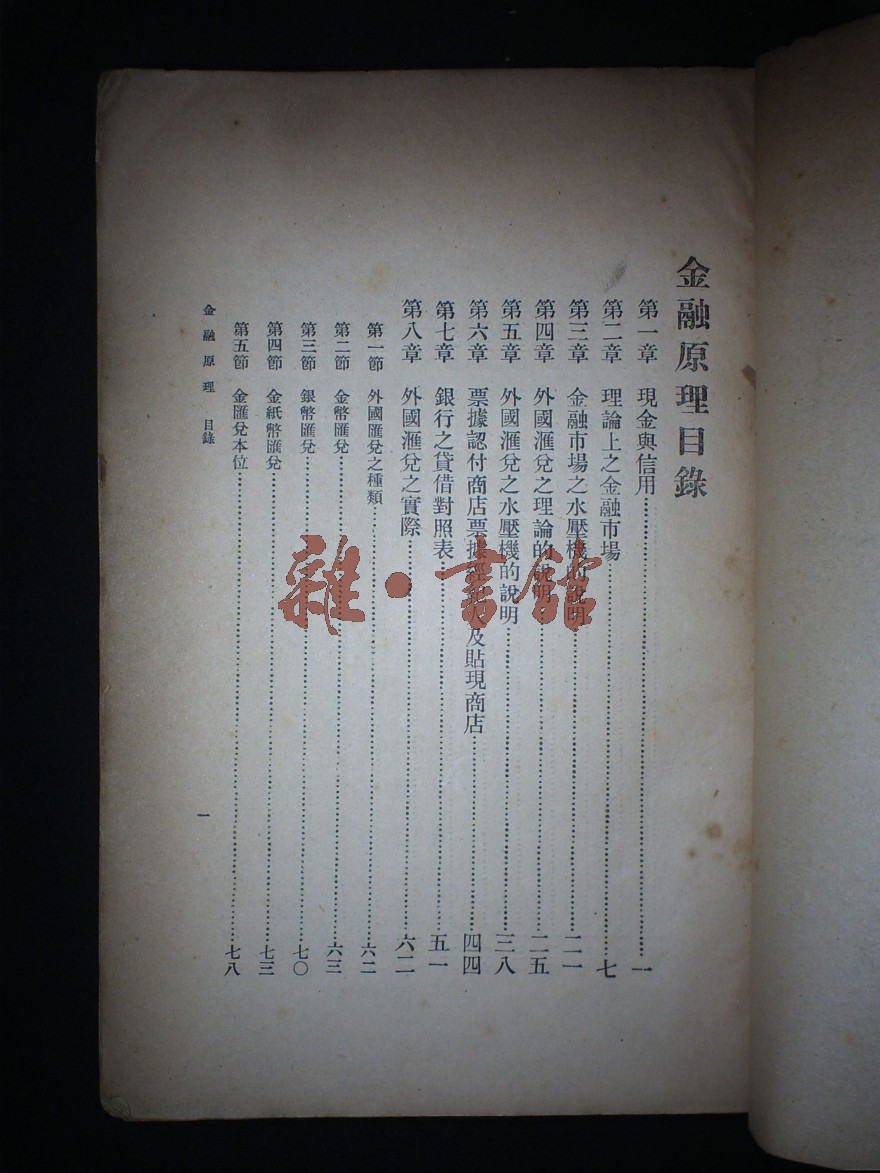 金融原理目錄
第一章 現金與信用……一
第二章 理論上之金融市場……七
第三章 金融市場之水壓機的說明……二一
第四章 外國滙兌之理論的說明……二五
第五章 外國滙兌之水壓機的說明……三八
第六章 票據認付商店票據經紀人及貼現商店……四四
第七章 銀行之貸借對照表……五一
第八章 外國滙兌之實際……六二
第一節 外國滙兌之種類……六二
第二節 金幣滙兌……六三
第三節 銀幣滙兌……七〇
第四節 金紙幣滙兌……七三
第五節 金滙兌本位……七八
金融原理 目錄
一
雜·書館